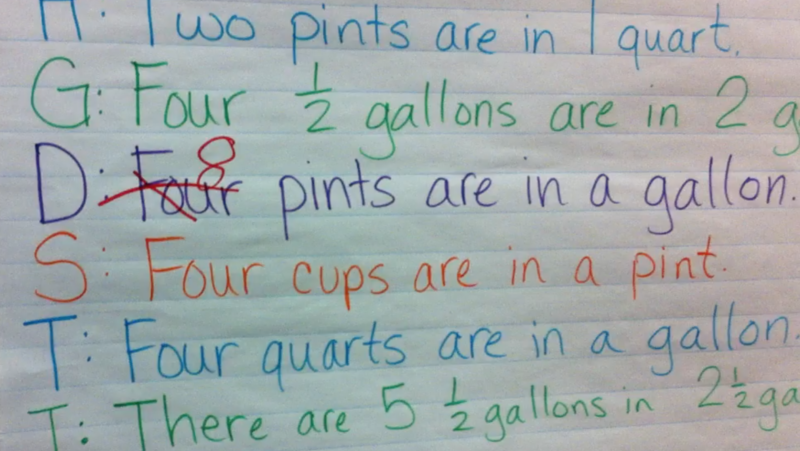 H: Two pints are in 1 quart.
G: Four 1/2 gallons are in 2 g
D: Four 8 pints are in a gallon.
S: Four cups are in a pint.
T: Four quarts are in a gallon.
T: There are 5 1/2 gallons in 2 1/2 ga